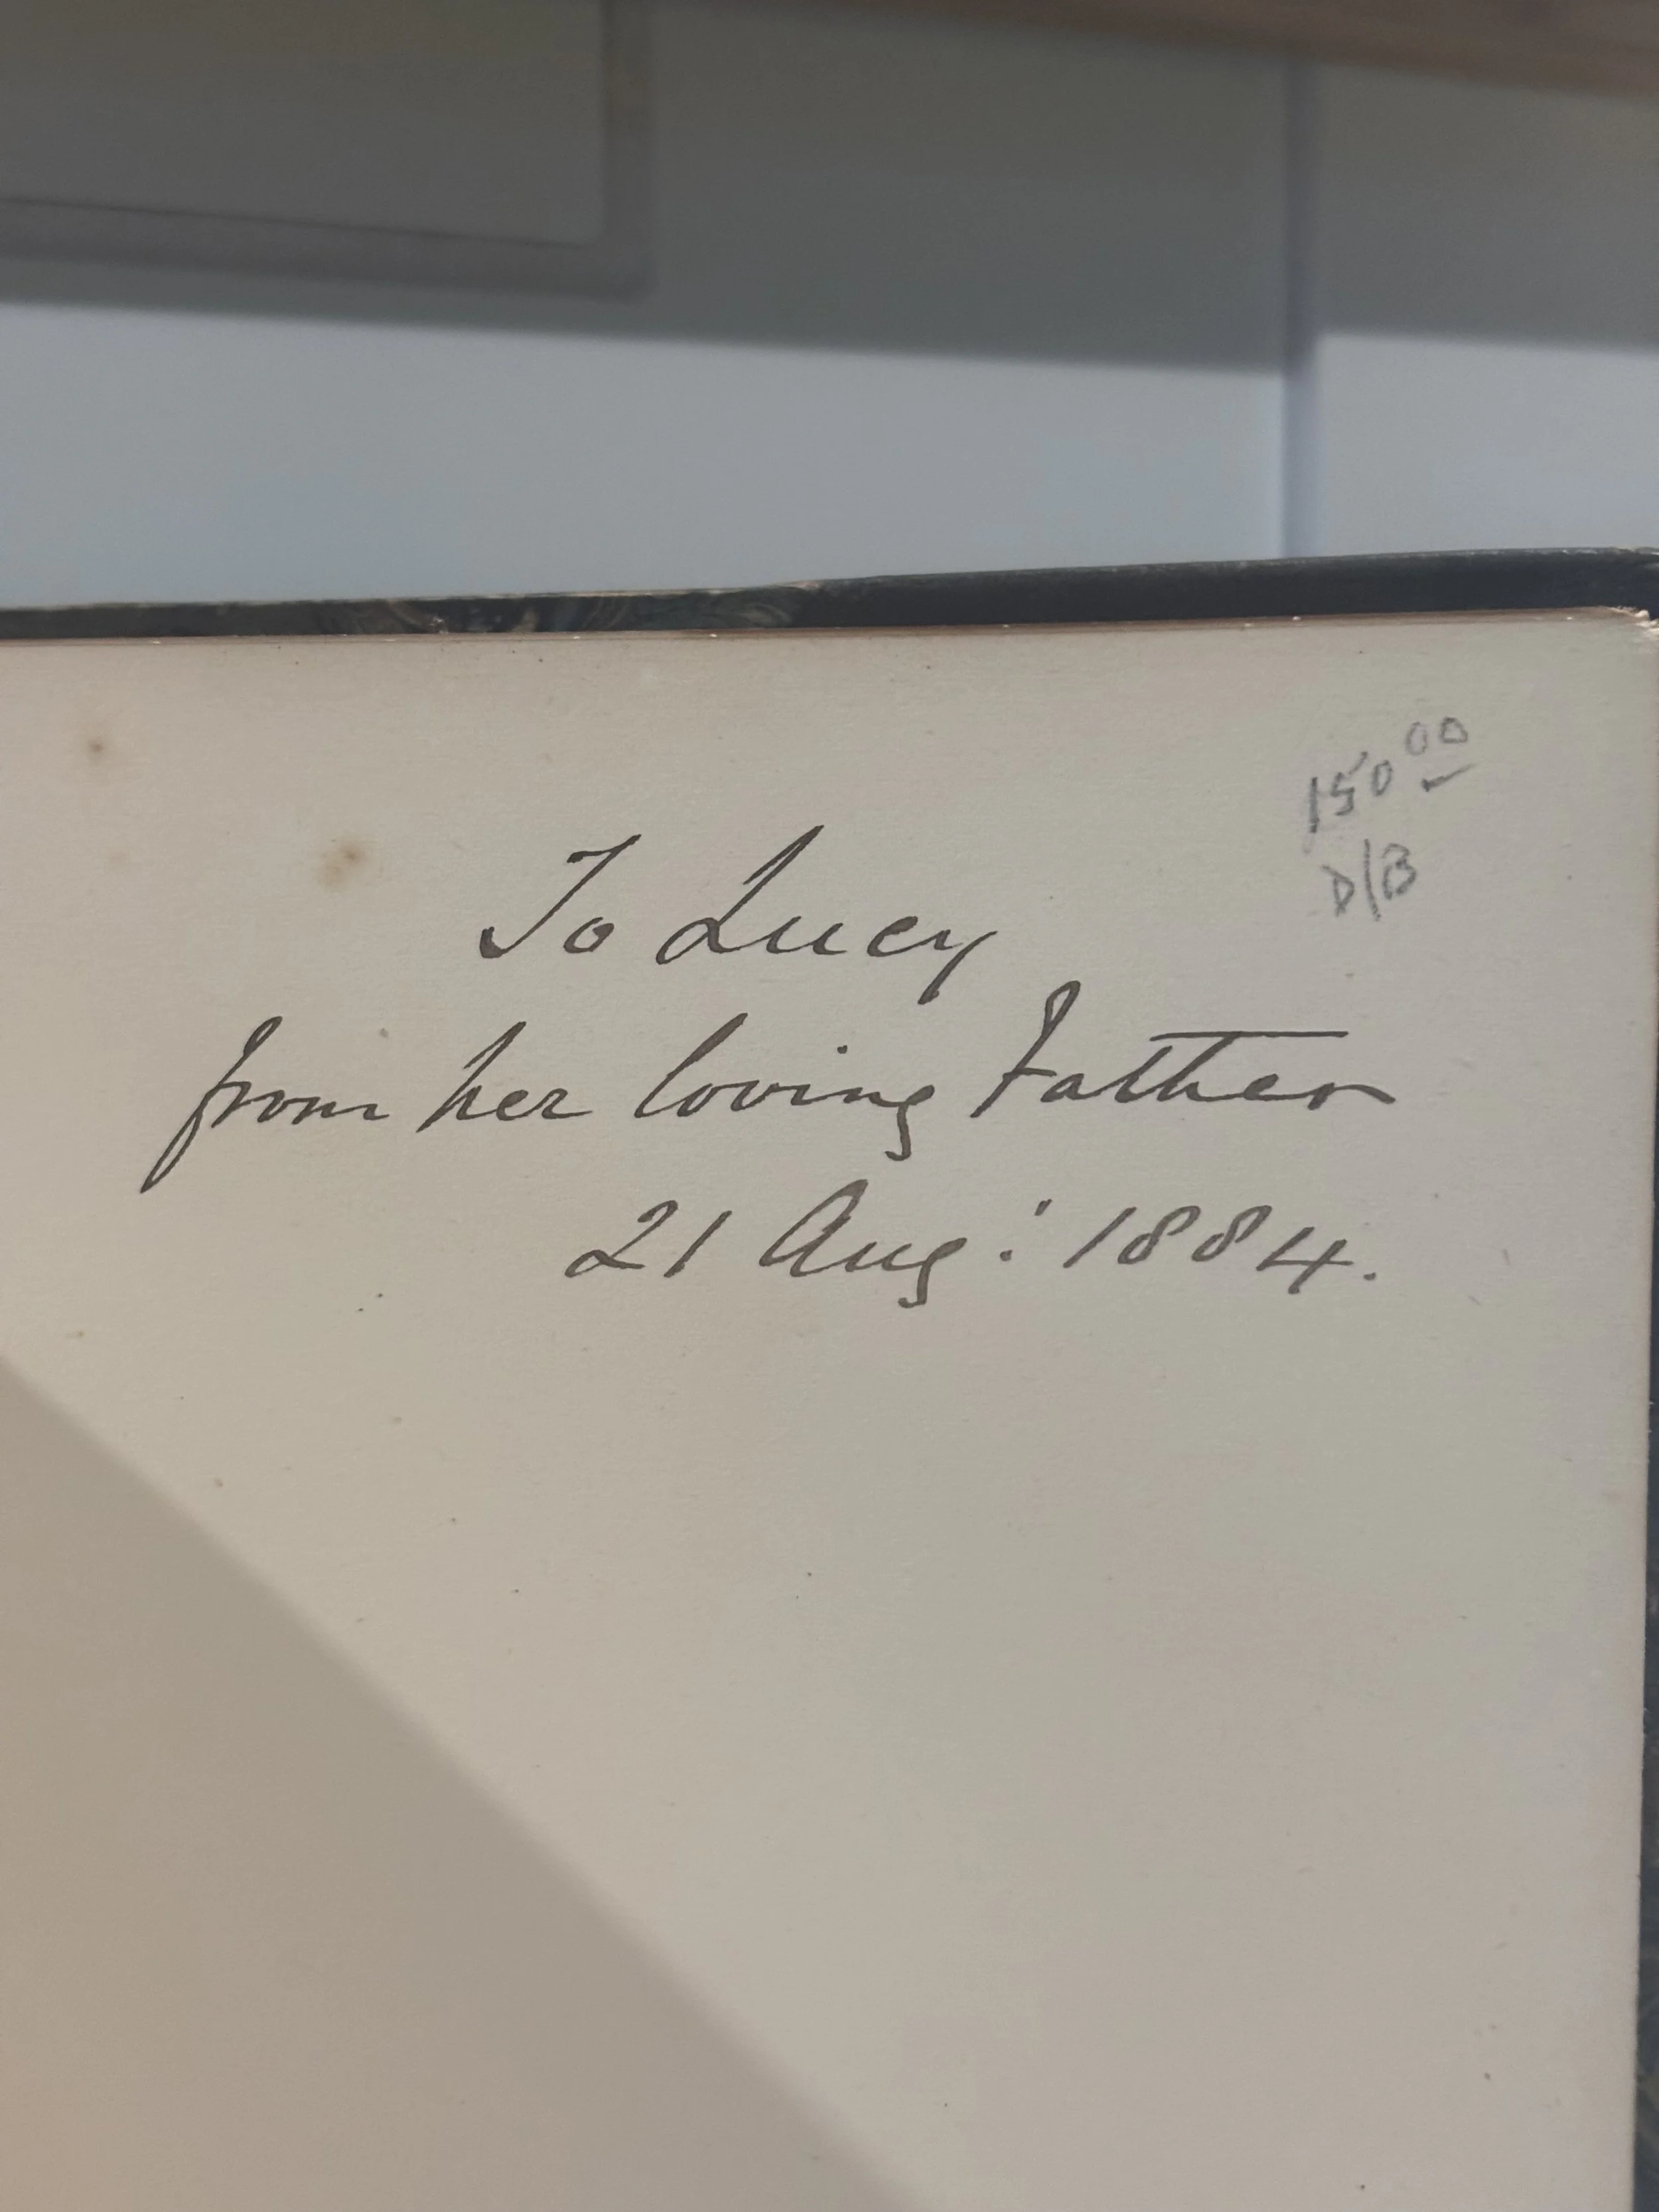 150 00
D/B
To Lucy
from her loving Father
21 Aug: 1884.